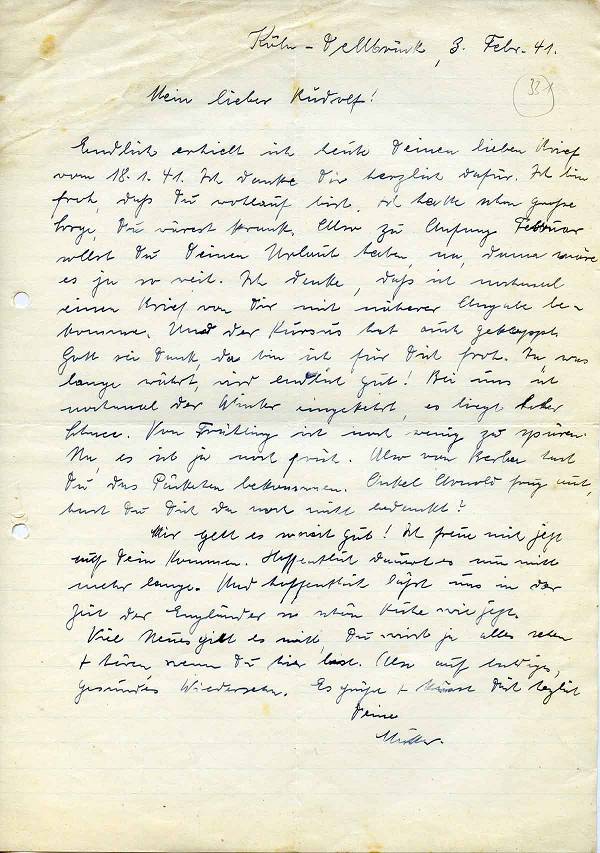 Köln-Dellbrück, 3. Febr. 41.
33
Mein lieber Rudolf!
Endlich erhielt ich heute Deinen lieben Brief
vom 18.1.41. Ich danke Dir herzlich dafür. Ich bin
froh, daß Du wohlauf bist, ich hatte schon große
Sorge, Du wärest krank. Also zu Anfang Februar
sollst Du Deinen Urlaub haben, na, dann wäre
es ja so weit. Ich denke, daß ich nochmal
einen Brief von Dir mit näherer Angabe be-
komme. Und der Kursus hat auch geklappt.
Gott sei Dank, da bin ich für Dich froh. Ja, was
lange währt, wird endlich gut! Bei uns ist
nochmal der Winter eingekehrt, es liegt hoher
Schnee. Vom Frühling ist noch wenig zu spüren.
Na, es ist ja noch früh. Also von hast
Du das Päckchen bekommen. Onkel Arnold frug mich,
hast Du Dich da noch nicht bedankt?
Mir geht es soweit gut! Ich freue mich jetzt
auf Dein Kommen. Hoffentlich dauert es nun nicht
mehr lange. Und hoffentlich läßt uns in der
Zeit der Engländer so schön Ruhe wie jetzt.
Viel Neues gibt es nicht. Du wirst ja alles sehen
+ hören wenn Du hier bist. Also auf baldiges,
gesundes Wiedersehn. Es grüßt + küsst Dich herzlich
Deine
Mutter.